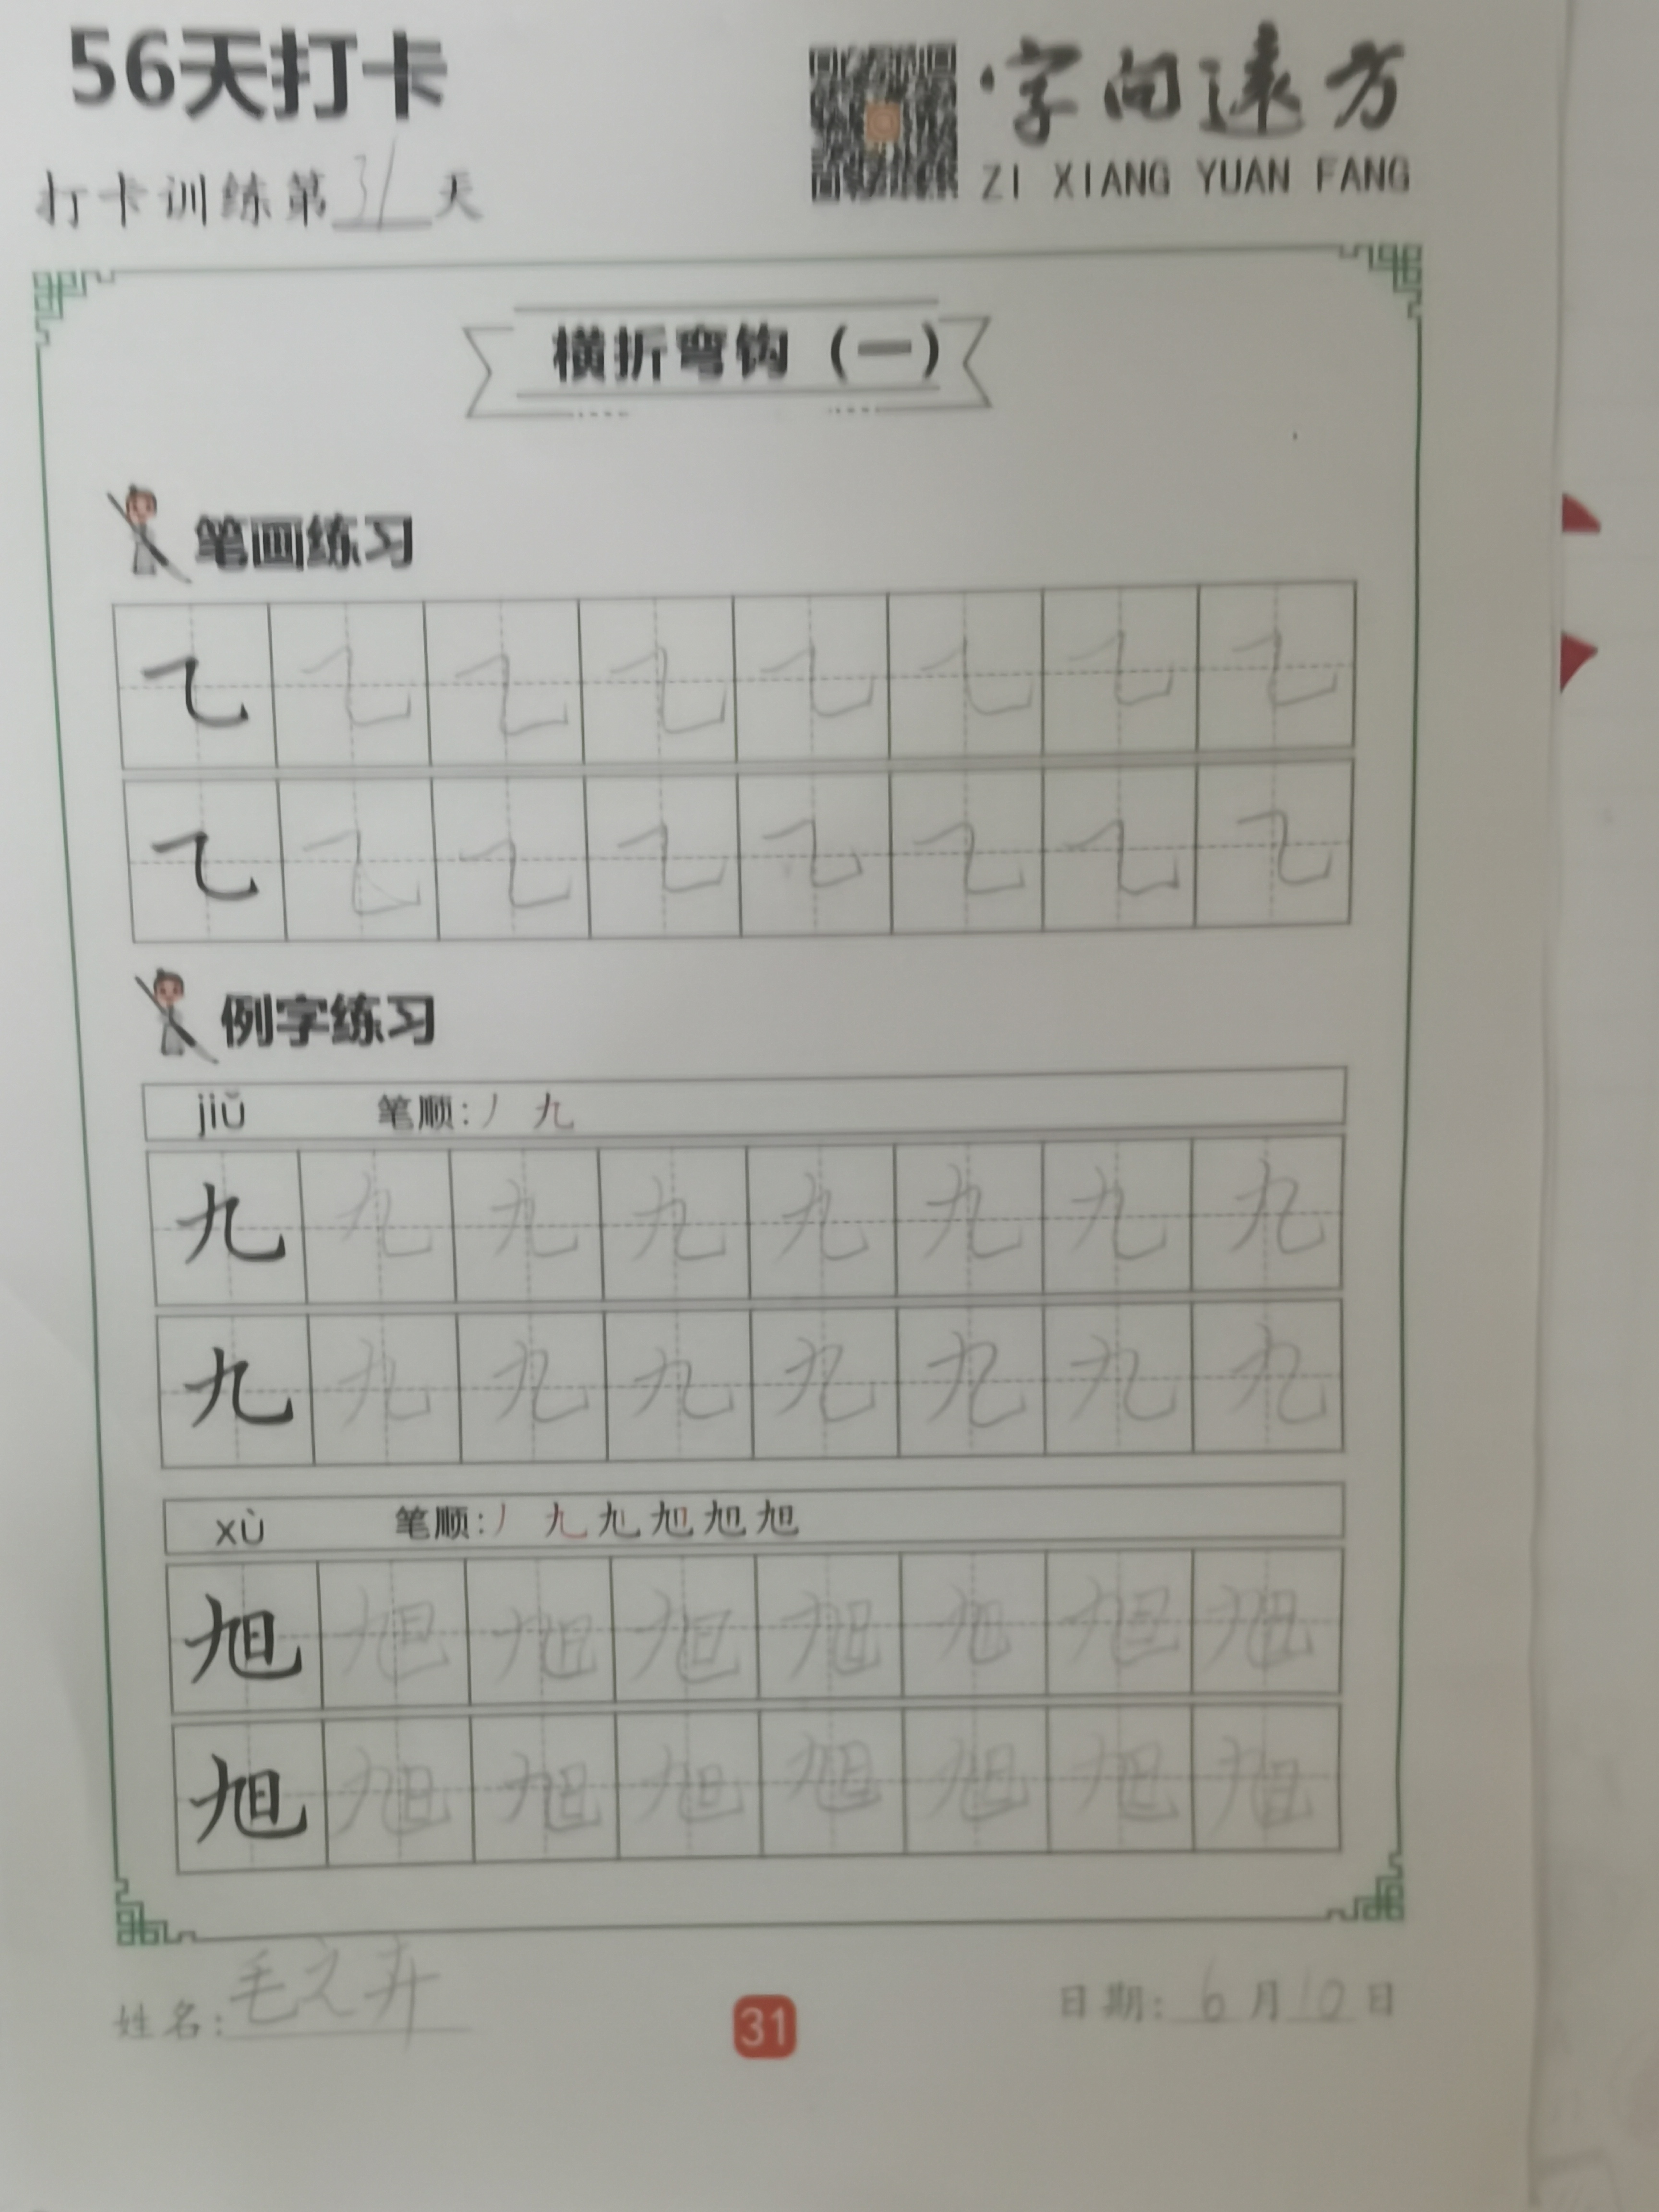 56天打卡
字向远方
ZI XIANG YUAN FANG
打卡训练第31天
横折弯钩（一）
笔画练习
㇈ ㇈ ㇈ ㇈ ㇈ ㇈ ㇈ ㇈
㇈ ㇈ ㇈ ㇈ ㇈ ㇈ ㇈ ㇈
例字练习
jiǔ 笔顺：丿 九
九 九 九 九 九 九 九 九
九 九 九 九 九 九 九 九
xù 笔顺：丿 九 旭 旭 旭
旭 旭 旭 旭 旭 旭 旭 旭
旭 旭 旭 旭 旭 旭 旭 旭
姓名：毛之卉
31
日期：6月10日